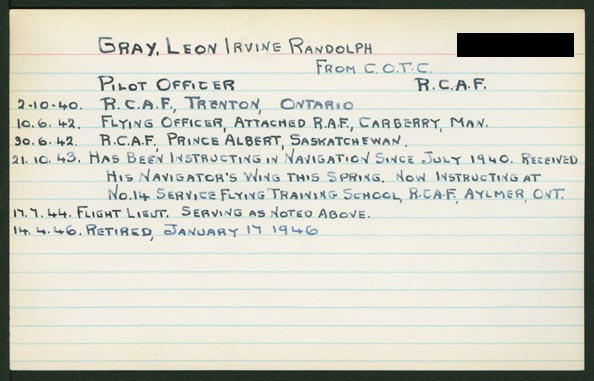 GRAY, LEON IRVINE RANDOLPH
FROM C.O.T.C.
PILOT OFFICER R.C.A.F.
2-10-40. R.C.A.F., TRENTON, ONTARIO
10.6.42. FLYING OFFICER, ATTACHED R.A.F., CARBERRY, MAN.
30.6.42. R.C.A.F. PRINCE ALBERT, SASKATCHEWAN.
21.10.43. HAS BEEN INSTRUCTING IN NAVIGATION SINCE JULY 1940. RECEIVED
HIS NAVIGATOR'S WING THIS SPRING. NOW INSTRUCTING AT
NO.14 SERVICE FLYING TRAINING SCHOOL, R.C.A.F., AYLMER, ONT.
17.7.44. FLIGHT LIEUT. SERVING AS NOTED ABOVE.
14.4.46. RETIRED, JANUARY 17 1946